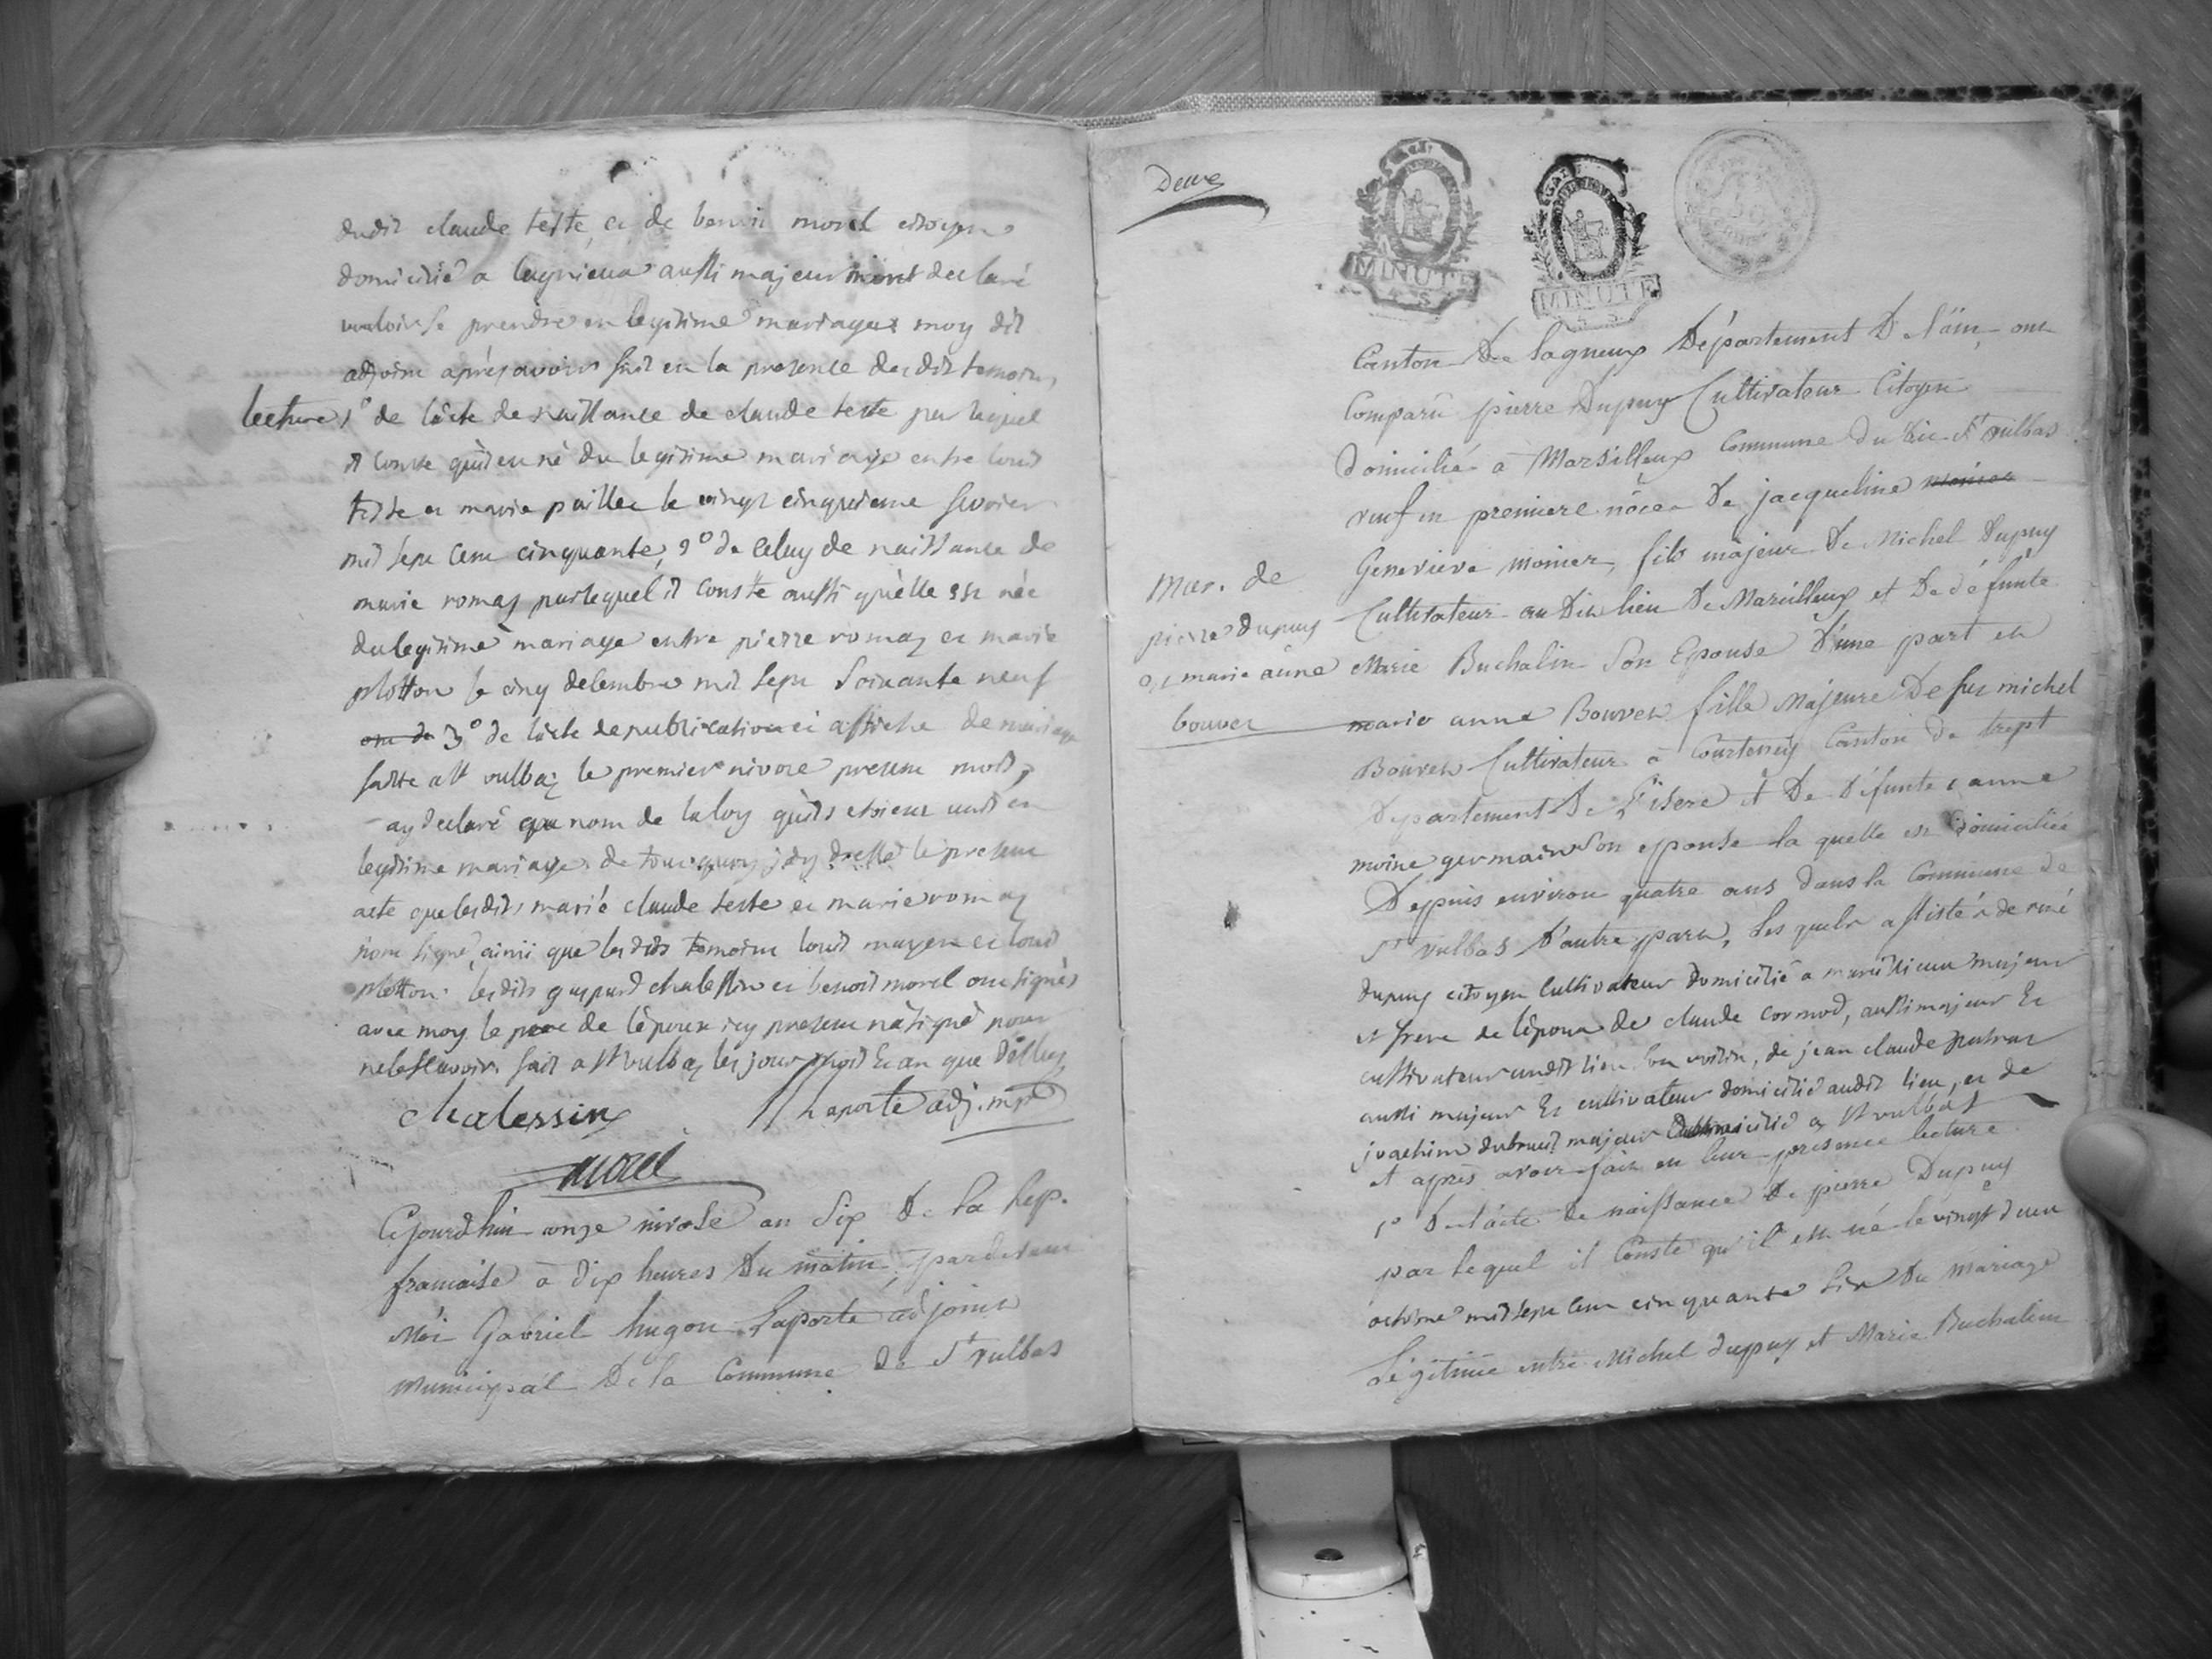 dudit claude teste, et de benoit morel citoyen
domicilié a lagnieux aussi majeur mont declaré
vouloir se prendre en legitime mariage moy dit
adjoint aprés avoir fait en la presence des dits temoins
lecture 1° de lâcte de naissance de claude teste par lequel
il conste quil est né du legitime mariage entre louis
teste et marie paillet le vingt cinquieme fevrier
mil sept cent cinquante, 2° de celuy de naissance de
marie romaz par lequel il conste aussi quèlle est née
du legitime mariage entre pierre romaz et marie
plotton le cinq decembre mil sept soixante neuf
3° de lâcte de publication et affiche de mariage
faitte a st vulbaz le premier nivose present mois,
ay declaré au nom de la loy quils etoient unis en
legitime mariage de tout quoy jáy dressé le present
acte que lesdits marié claude teste et marie romaz
nont signé, ainsi que les dits temoins louis et louis
plotton. lesdits gaspard chalessin et benoit morel ont signés
avec moy le pere de lêpoux icy present nà signé pour
ne le scavoir. fait a st vulbaz les jour mois et an que dessus
chalessin laporte adj. mpal
morel
Cejourdhui onze nivose an dix De la Rep.
francaise à dix heures Du matin, pardevant
Moi Gabriel hugon Laporte adjoint
Municipal De la Commune de St vulbas
Deuxe
MINUTE
MINUTE
Canton De lagneux Département De l'äin, ont
Comparü pierre Dupuy Cultivateur Citoyen
Domicilié à Marsilleux Commune du dit St vulbas
veuf en premiere nôces De jacqueline
Genevieve monier, fils majeur De Michel Dupuy
Mar. de
pierre dupuy
et marie anne
bouvet
Cultivateur au Dit lieu De Marcilleux et De défunte
Marie Buchalin Son Epouse D'une part et
marie anne Bouvet fille Majeure De feu michel
Bouvet Cultivateur à Courtenay Canton de trept
Departement De l'isere et De Défunte anne
moine germain Son epouse la quelle est Domiciliée
Depuis environ quatre ans dans la Commune de
St vulbas D'autre part, les quels assistés de rené
dupuy citoyen cultivateur domicilié a marcillieux majeur
et frere de lêpoux de claude cormod, aussi majeur Et
cultivateur audit lieu son voisin, de jean claude
aussi majeur Et cultivateur domicilié audit lieu, et de
joachim dubreuil majeur domicilié a St vulbas
et après avoir fait en leur presence lecture
1° De l'âcte de naissance De pierre Dupuy
par lequel il Conste qu'il est né le vingt deux
octobre mil sept cent cinquante six Du Mariage
Légitime entre Michel dupuy et Marie Buchalin